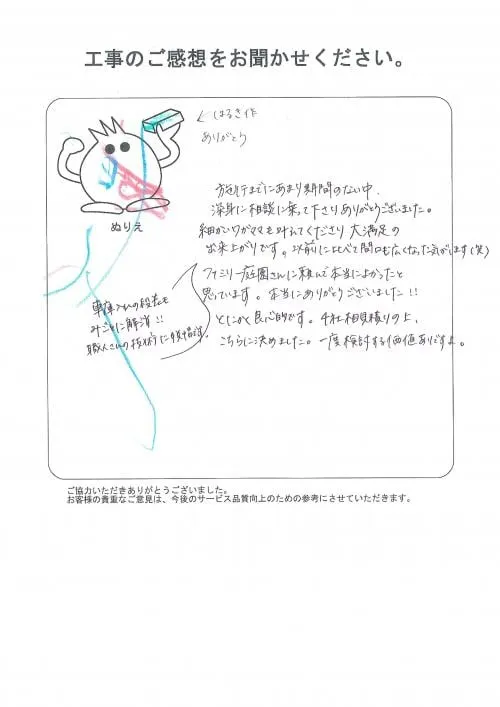 工事のご感想をお聞かせください。
←はるき作
ありがとう
ぬりえ
施行までにあまり時間のない中、
深身に相談に乗って下さりありがとうございました。
細かいワガママも叶えてくださり大満足の
出来上がりです。以前に比べて間口も広くなった気がします(笑)
ファミリー庭園さんに頼んで本当によかったと
思っています。本当にありがとうございました!!
とにかく良心的です。4社相見積りの上、
こちらに決めました。一度検討する価値ありですよ。
車庫入れの段差も
みごとに解消!!
職人さんの技術に
ご協力いただきありがとうございました。
お客様の貴重なご意見は、今後のサービス品質向上のための参考にさせていただきます。